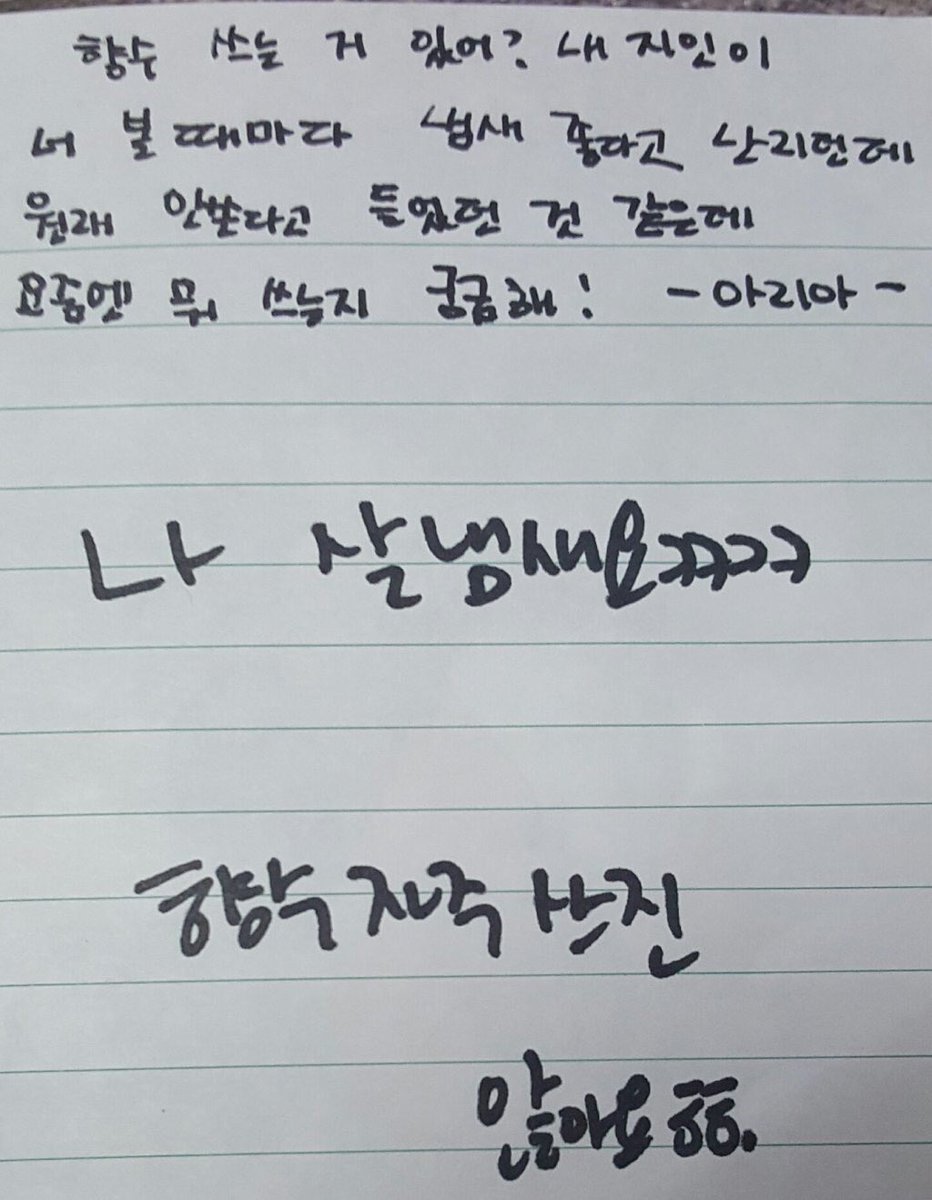 향수 쓰는 거 있어? 내 지인이
너 볼 때마다 냄새 좋다고 난리던데
원래 안쓴다고 들었던 것 같은데
요즘엔 뭐 쓰는지 궁금해! -아리아-
나 살냄새요ㅋㅋㅋㅋ
향수 자주 쓰진
않아요 ㅎㅎ.